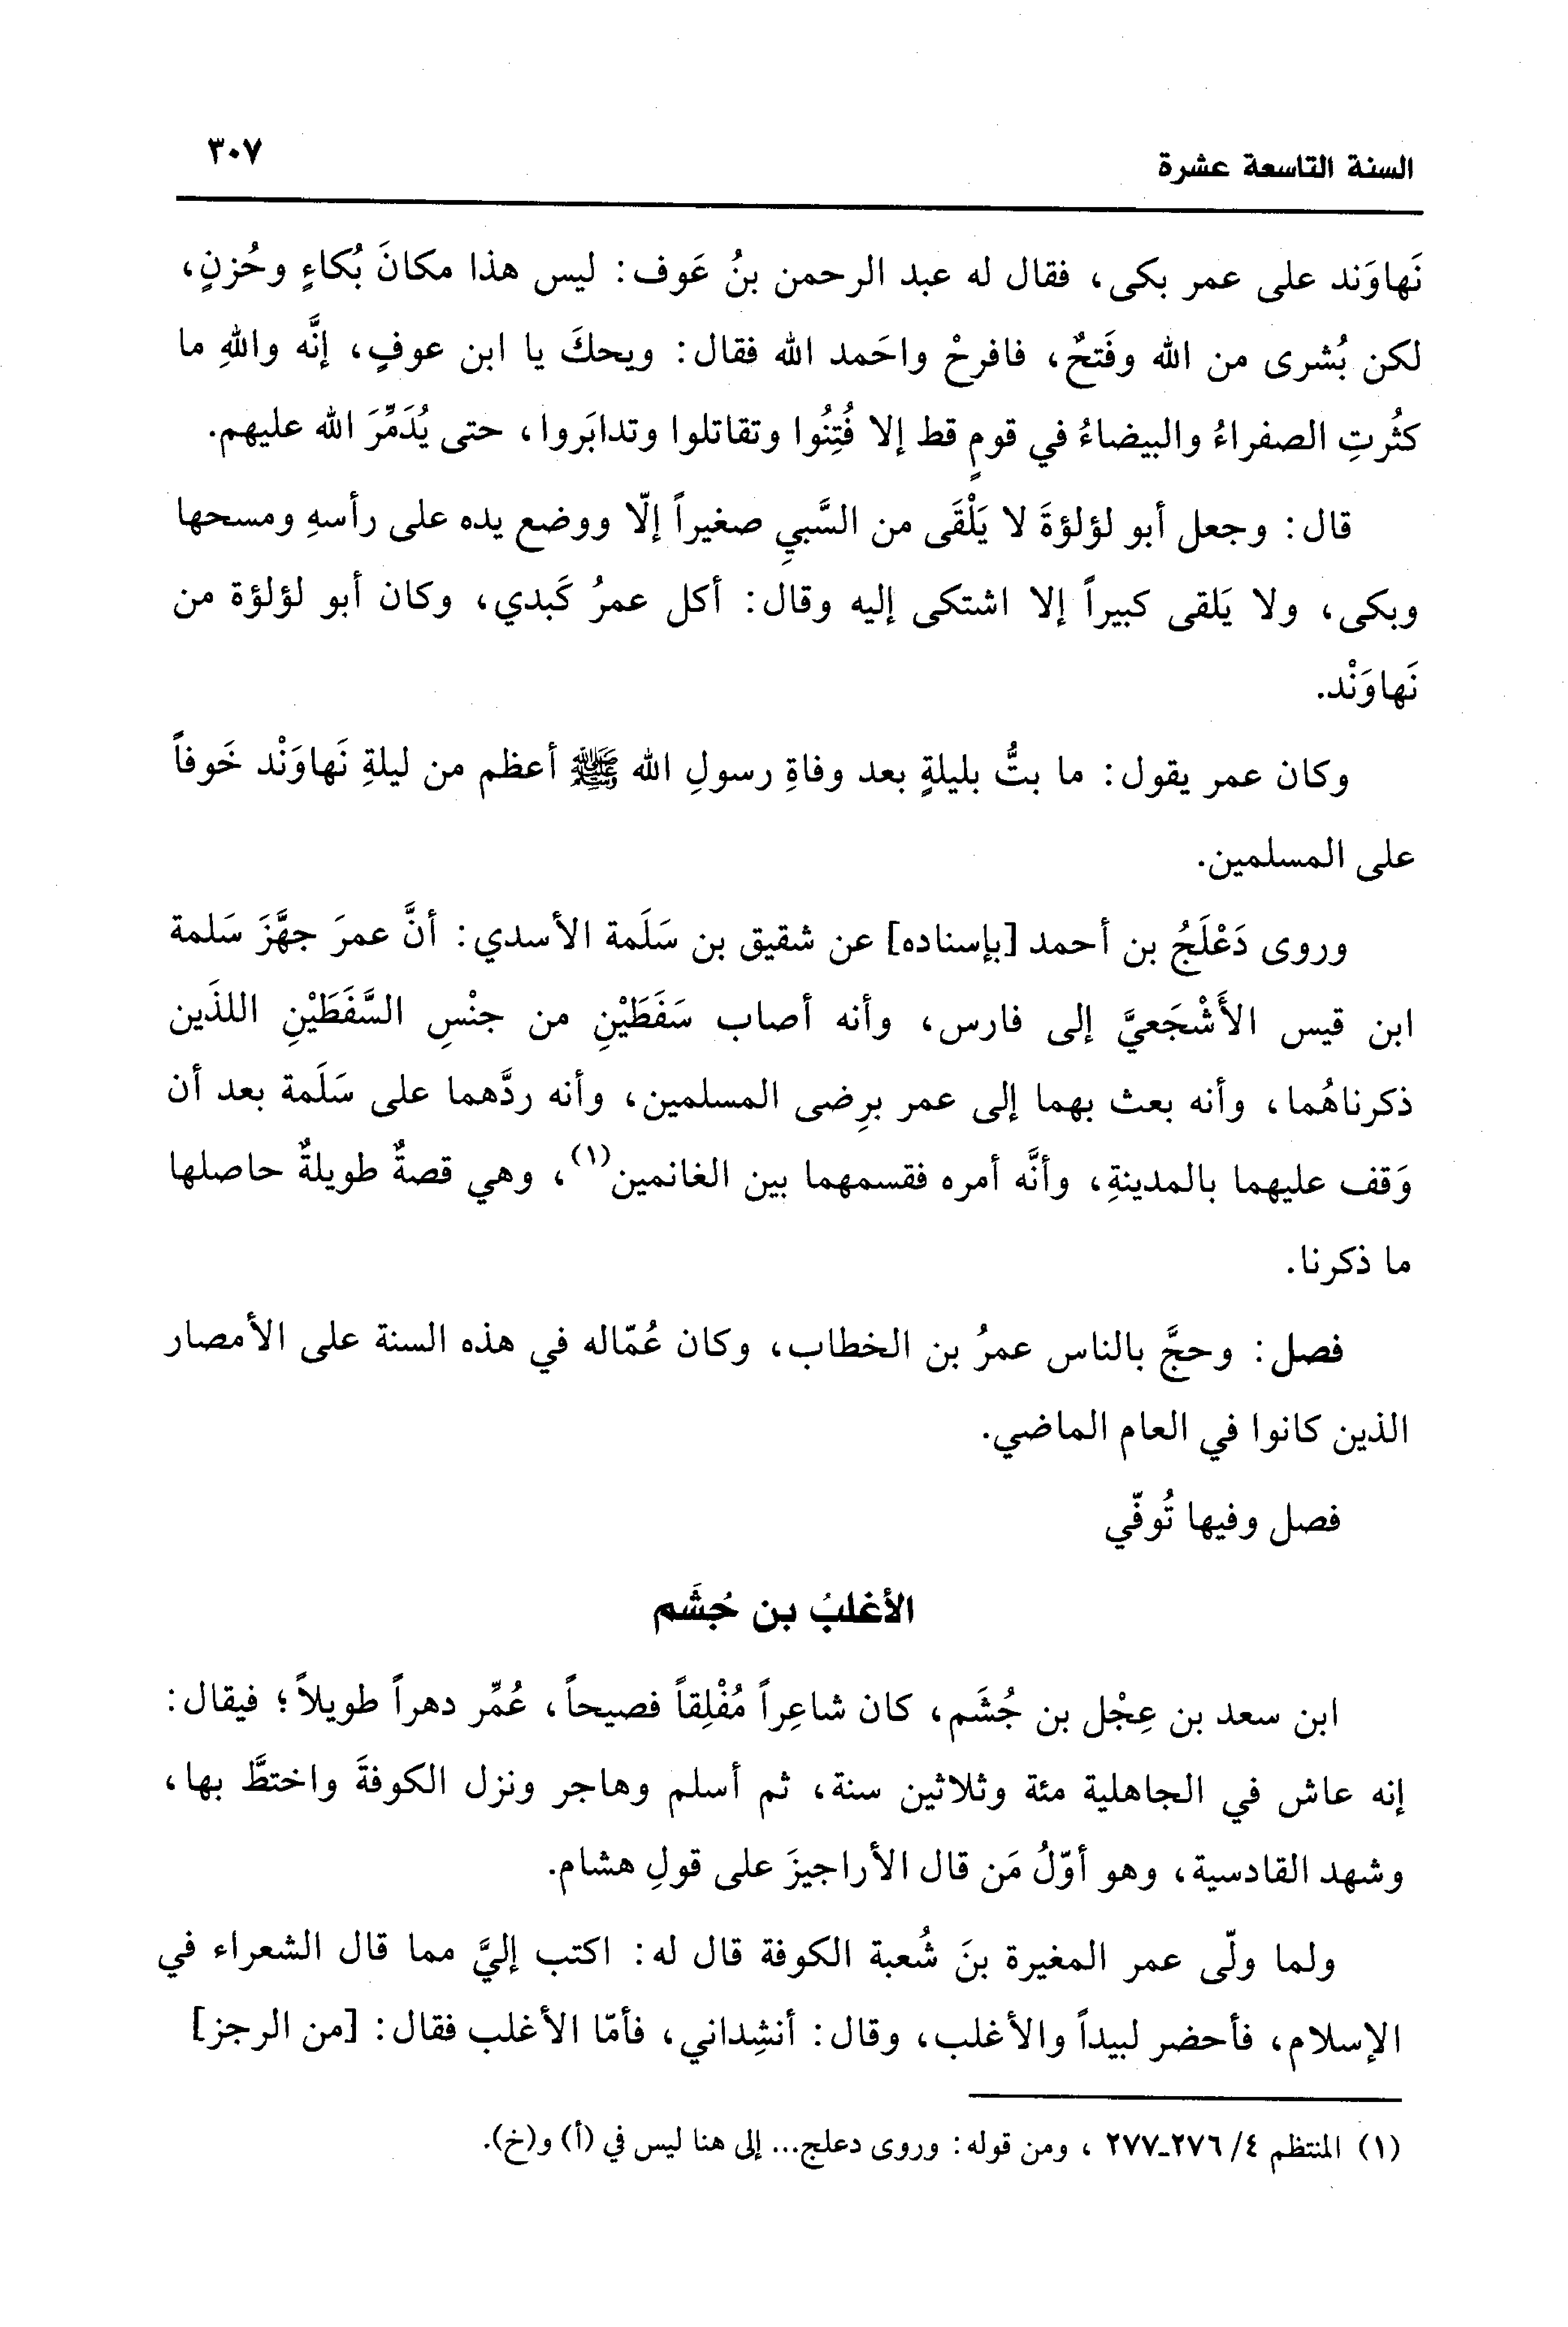 السنة التاسعة عشرة
٣٠٧
نَهاوَند على عمر بكى، فقال له عبد الرحمن بنُ عَوف: ليس هذا مكانَ بُكاءٍ وحُزنٍ،
لكن بُشرى من الله وفَتحٌ، فافرحْ واحَمد الله فقال: ويحكَ يا ابن عوفٍ، إنَّه واللهِ ما
كثُرتِ الصفراءُ والبيضاءُ في قومٍ قط إلا فُتِنُوا وتقاتلوا وتدابَروا، حتى يُدَمِّرَ الله عليهم.
قال: وجعل أبو لؤلؤةَ لا يَلْقَى من السَّبيِ صغيراً إلّا ووضع يده على رأسهِ ومسحها
وبكى، ولا يَلقى كبيراً إلا اشتكى إليه وقال: أكل عمرُ كَبدي، وكان أبو لؤلؤة من
نَهاوَنْد.
وكان عمر يقول: ما بتُّ بليلةٍ بعد وفاةِ رسولِ الله ﷺ أعظم من ليلةِ نَهاوَنْد خَوفاً
على المسلمين.
وروى دَعْلَجُ بن أحمد [بإسناده] عن شقيق بن سَلَمة الأسدي: أنَّ عمرَ جهَّزَ سَلمة
ابن قيس الأَشْجَعيَّ إلى فارس، وأنه أصاب سَفَطَيْنِ من جنْسِ السَّفَطَيْنِ اللذَين
ذكرناهُما، وأنه بعث بهما إلى عمر برِضى المسلمين، وأنه ردَّهما على سَلَمة بعد أن
وَقف عليهما بالمدينةِ، وأنَّه أمره فقسمهما بين الغانمين(١)، وهي قصةٌ طويلةٌ حاصلها
ما ذكرنا.
فصل: وحجَّ بالناس عمرُ بن الخطاب، وكان عُمّاله في هذه السنة على الأمصار
الذين كانوا في العام الماضي.
فصل وفيها تُوفّي
الأغلبُ بن جُشَم
ابن سعد بن عِجْل بن جُشَم، كان شاعِراً مُفْلِقاً فصيحاً، عُمِّر دهراً طويلاً؛ فيقال:
إنه عاش في الجاهلية مئة وثلاثين سنة، ثم أسلم وهاجر ونزل الكوفةَ واختطَّ بها،
وشهد القادسية، وهو أوّلُ مَن قال الأراجيزَ على قولِ هشام.
ولما ولّى عمر المغيرة بنَ شُعبة الكوفة قال له: اكتب إليَّ مما قال الشعراء في
الإسلام، فأحضر لبيداً والأغلب، وقال: أنشِداني، فأمّا الأغلب فقال: [من الرجز]
(١) المنتظم ٤/ ٢٧٦-٢٧٧ ، ومن قوله: وروى دعلج... إلى هنا ليس في (أ) و(خ).